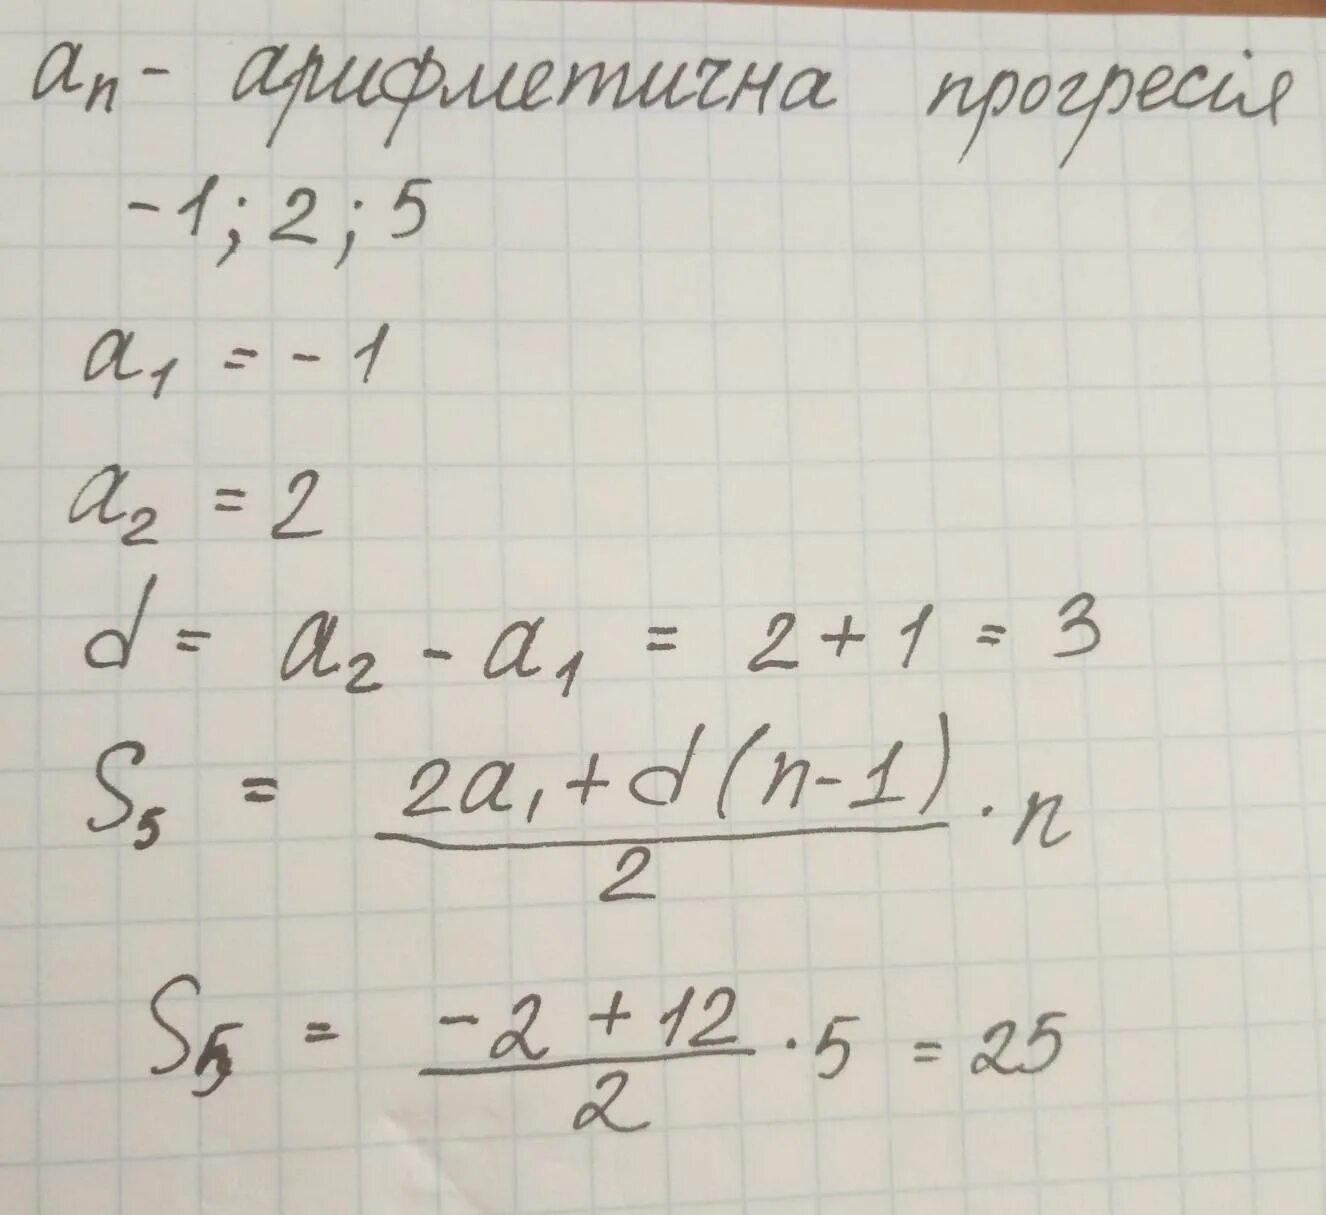 aₙ - арифметична прогресія
-1; 2; 5
a₁ = -1
a₂ = 2
d = a₂ - a₁ = 2 + 1 = 3
S₅ = (2a₁ + d(n-1))/2 · n
S₅ = (-2 + 12)/2 · 5 = 25